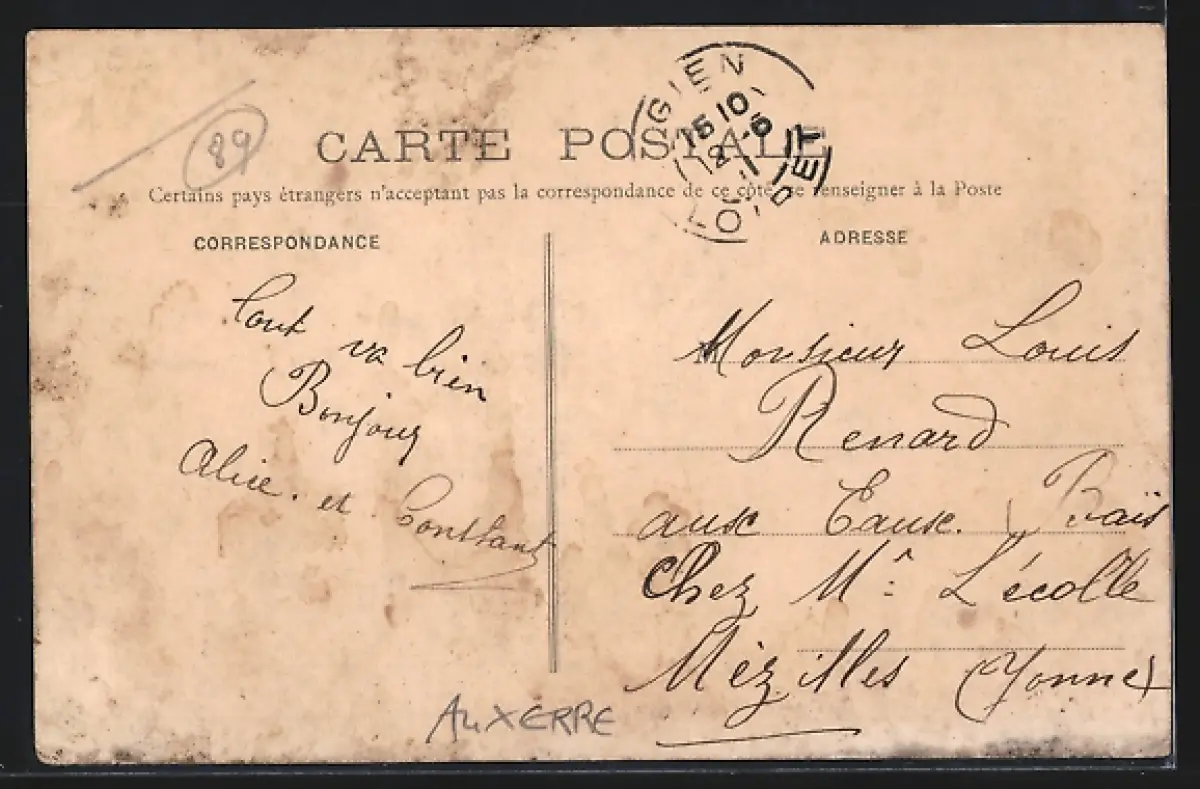 89
CARTE POSTALE
Certains pays étrangers n'acceptant pas la correspondance de ce côté, se renseigner à la Poste
GIEN
15 10
2 -5
LOIRET
CORRESPONDANCE
Tout va bien
Bonjour
Alice. et Constant
ADRESSE
Monsieur Louis
Renard
aux Eaux.
Chez Mr L'écolle
Mézilles (Yonne)
AUXERRE